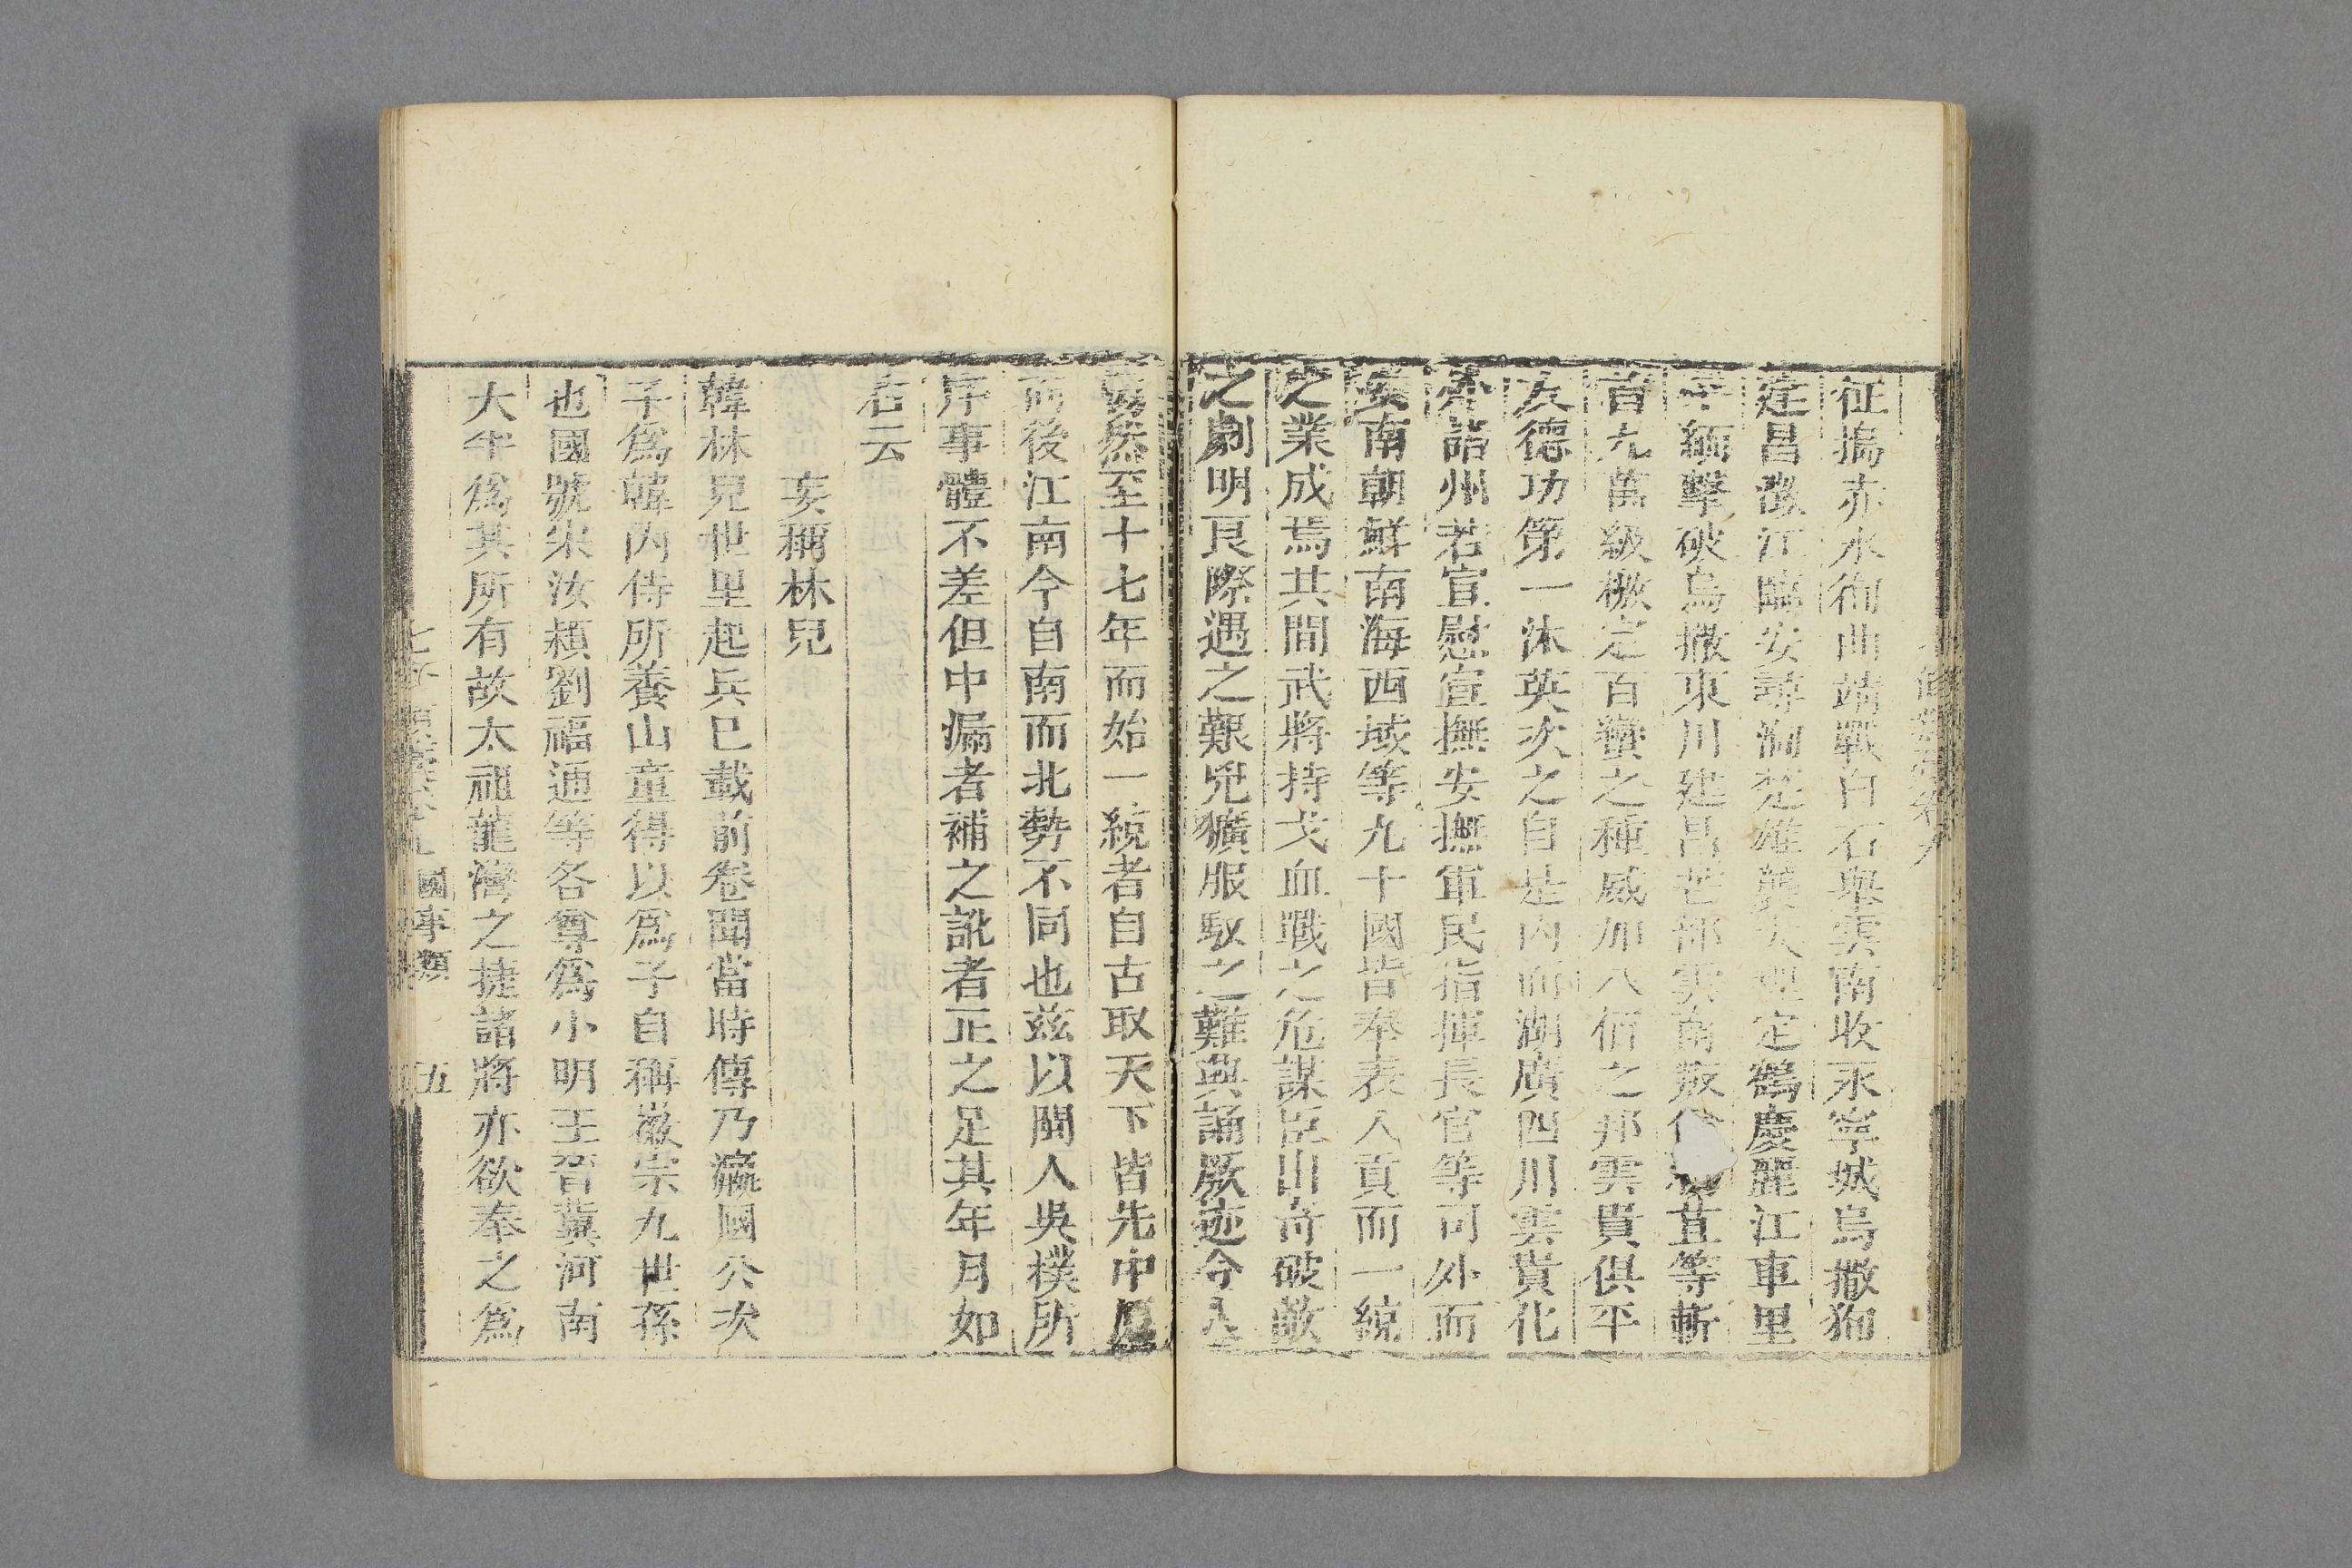 征搗赤水徇曲靖戰白石舉雲南收永寧城烏撒狥
建昌徵江臨安尋洞楚雄襲大理定鶴慶麗江車里
平緬擊破烏撒東川建昌芒部雲南叛苴等斬
首九萬級檄定百蠻之種威加八伯之邦雲貴俱平
友德功第一沐英次之自是內而湖廣四川雲貴化
外諸州若宣慰宣撫安撫軍民指揮長官等司外而
安南朝鮮南海西域等九十國皆奉表入貢而一統
之業成焉其間武將持戈血戰之危謀臣出奇破敵
之劇明良際遇之艱兇獷服馭之難輿誦厥迹今人
然至十七年而始一統者自古取天下皆先中原
而後江南今自南而北勢不同也茲以聞人吳樸所
序事體不差但中漏者補之訛者正之足其年月如
右云
妄稱林兒
韓林兒世里起兵已載前卷聞當時傳乃瀛國公次
子爲韓內侍所養山童得以爲子自稱徽宗九世孫
也國號宋汝潁劉福通等各尊爲小明王晉冀河南
大半爲其所有故太祖龍灣之捷諸將亦欲奉之爲
七脩類藁卷九 國事類 五